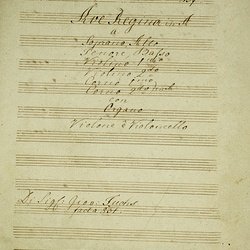 Ave Regina in A
a
Soprano Alto
Tenore Basso
Violino 1mo
Violino 2do
Corno 1mo
Corno 2do
con
Organo
Violone e Violoncello
Di Sigl: Giov: